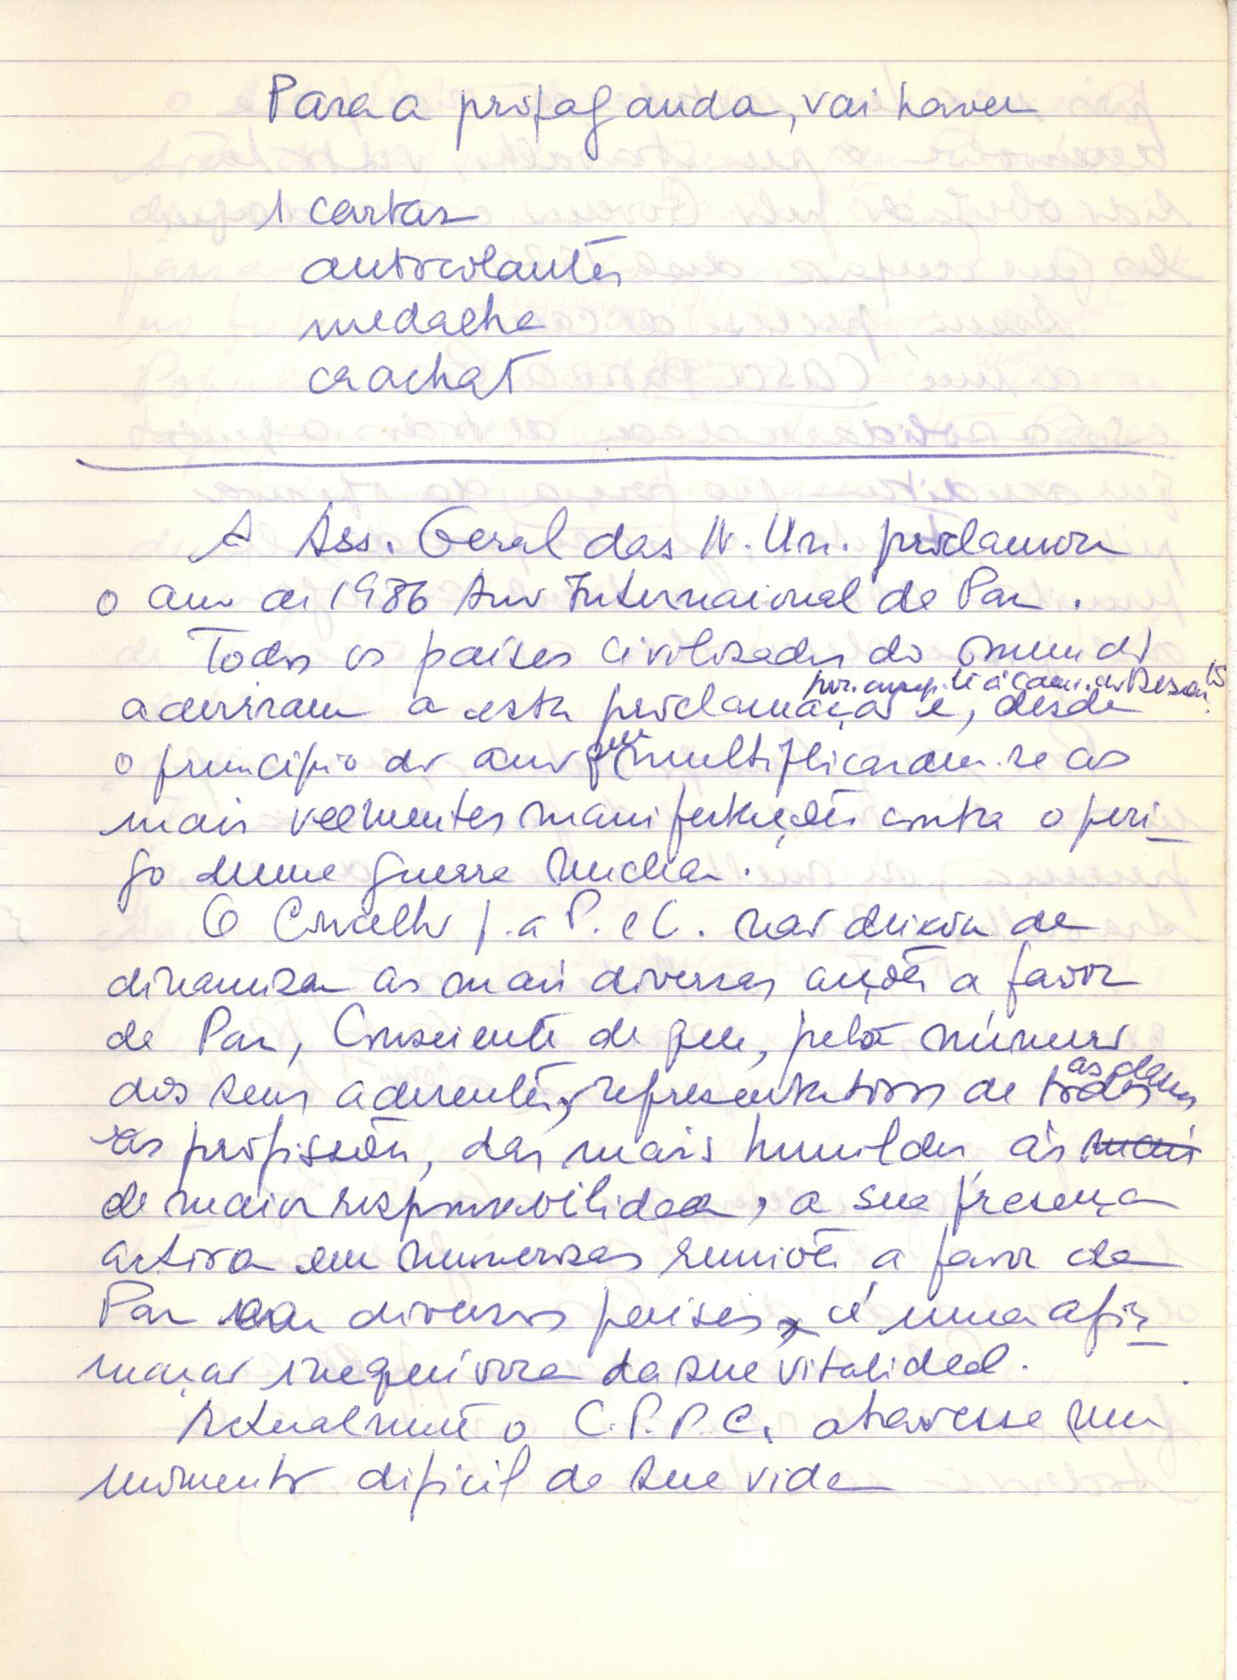 Para a propaganda, vai haver
1 cartaz
autocolantes
medalha
crachat
A Ass. Geral das N. Un. proclamou
o ano de 1986 Ano Internacional da Paz.
Todos os países civilizados do mundo
aderiram a esta proclamação e, desde
o princípio do ano que multiplicaram-se as
mais veementes manifestações contra o peri-
go duma guerra nuclear.
O Conselho p. a P. e C. não deixou de
dinamizar as mais diversas acções a favor
da Paz, Consciente de que, pelo número
dos seus aderentes, representativos de todas
as profissões, das mais humildes às mais
de maior responsabilidade, a sua presença
activa em numerosas reuniões a favor da
Paz em diversos países, é uma afir-
mação inequívoca da sua vitalidade.
Actualmente o C.P.P.C. atravessa um
momento difícil da sua vida